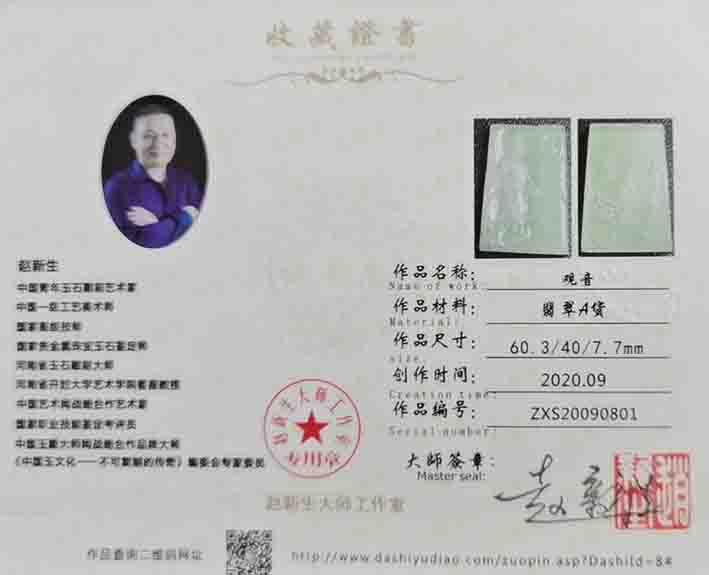 收藏證書
赵新生
中国青年玉石雕刻艺术家
中国一级工艺美术师
国家高级技师
国家贵金属珠宝玉石鉴定师
河南省玉石雕刻大师
河南省开封大学艺术学院客座教授
中国艺术陶战略合作艺术家
国家职业技能鉴定考评员
中国玉雕大师陶战略合作品牌大师
《中国玉文化——不可复制的传奇》编委会专家委员
作品名称: 观音
Name of work:
作品材料: 翡翠A货
Material:
作品尺寸: 60.3/40/7.7mm
size:
创作时间: 2020.09
Creation time:
作品编号: ZXS20090801
Serial number:
大师签章:
Master seal:
赵新生
赵新生大师工作室
专用章
赵新生大师工作室
作品查询二维码网址
http://www.dashiyudiao.com/zuopin.asp?DashiId=8#